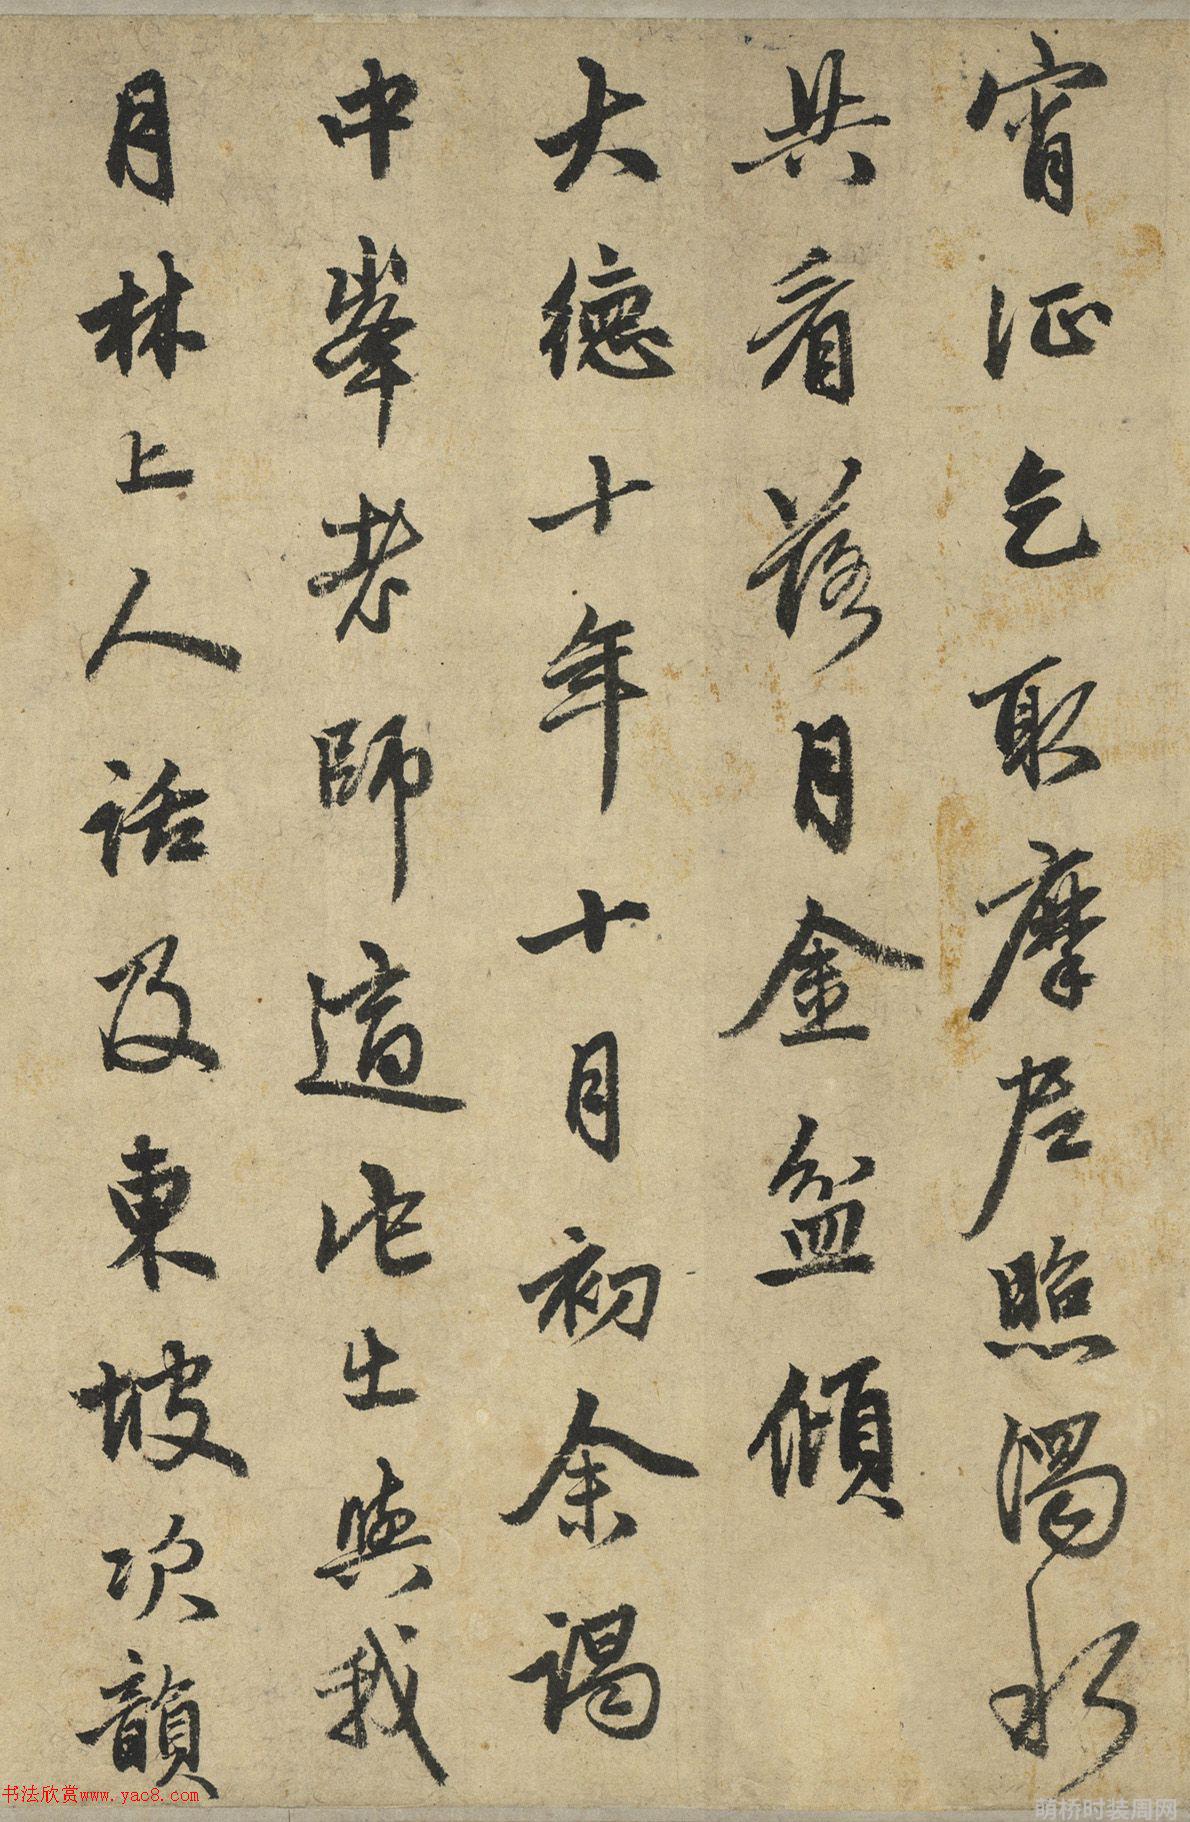 宵征乞取摩尼照濁水
共看落月金盆傾
大德十年十月初余謁
中峯老師道此出與我
月林上人話及東坡次韻
书法欣赏www.yac8.com
萌桥时装周网